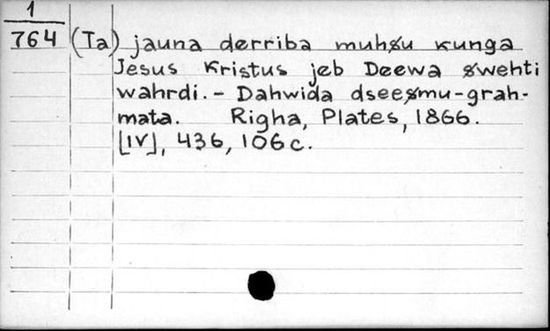 1
764 (Ta) jauna derriba muhſu kunga
Jesus Kristus jeb Deewa ſwehti
wahrdi. – Dahwida dseeſmu-grah-
mata. Righa, Plates, 1866.
[IV], 436, 106 c.